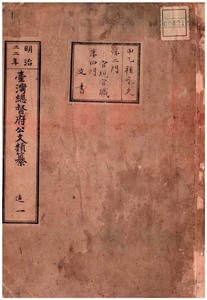 明治
三二年
臺灣總督府公文類纂
追一
甲乙種永久
第二門
官規官職
第四門
文書